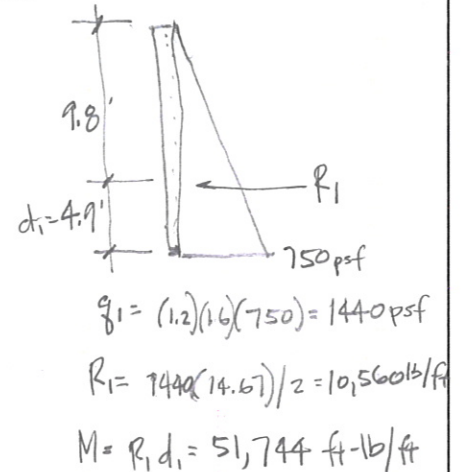 9.8'
R₁
d₁=4.9'
750psf
q₁= (1.2)(1.6)(750)= 1440psf
R₁= 1440(14.67)/2 =10,560lb/ft
M= R₁ d₁ = 51,744 ft-lb/ft